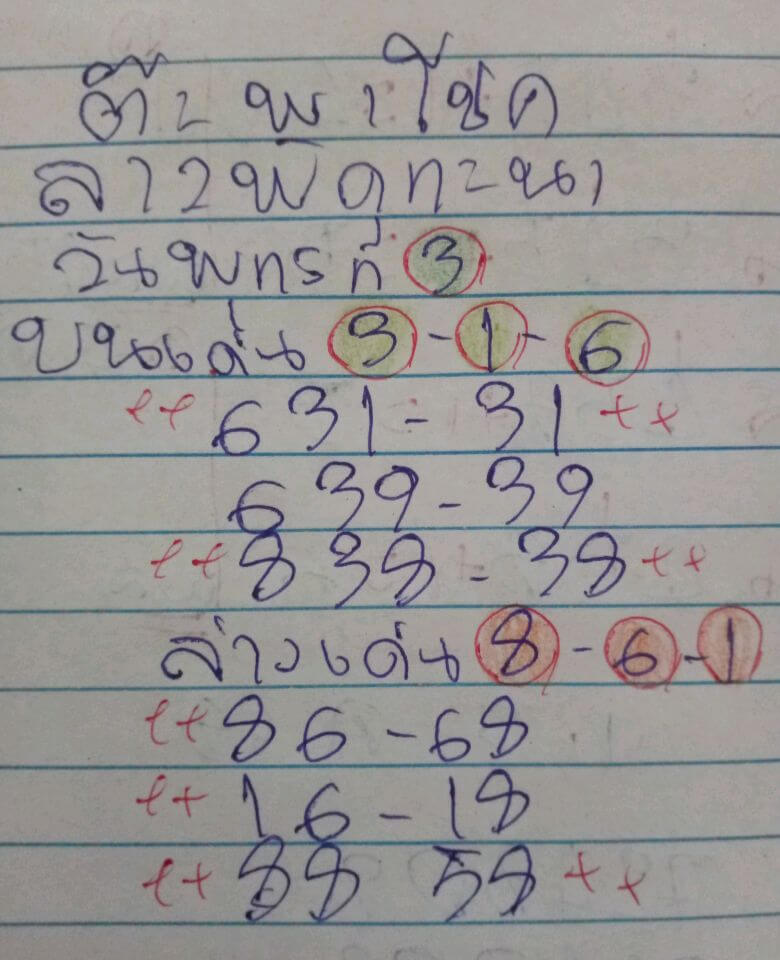 ต๊ะ พาโชค
ลาวพัดทะนา
วันพุทธที่ 3
บนเด่น 3-1-6
++ 631-31 ++
639-39
++ 838-38 ++
ล่างเด่น 8-6-1
++ 86-68
++ 16-18
++ 88 58 ++